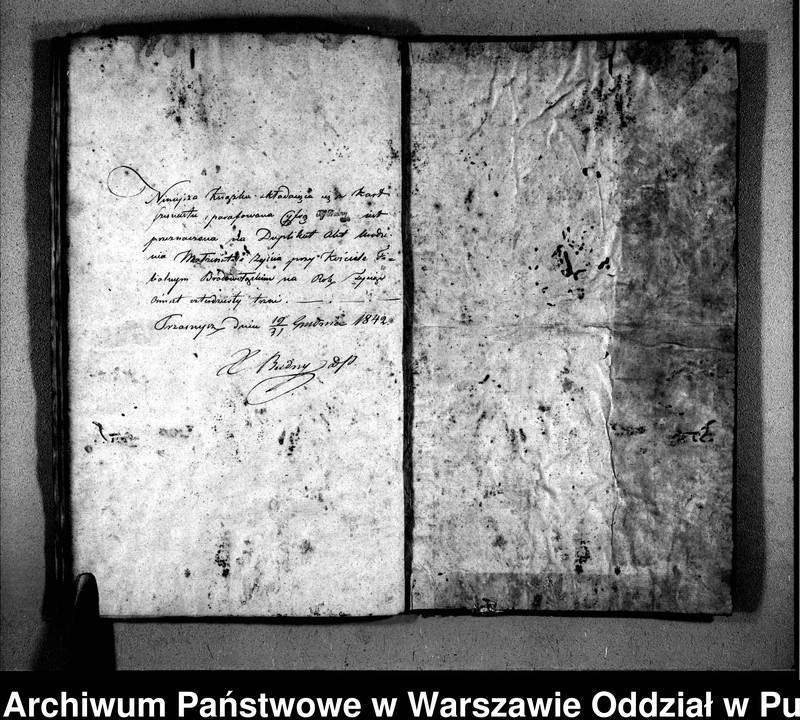 Niniejsza Książka składaiąca się z Kart
parafowana jest
przeznaczona na Duplikat Akt Urodze-
nia Małżeństw Zejścia przy Kościele Fi-
lialnym na Rok Tysiąc
Ośmset czterdziesty trzeci.
Przasnysz dnia 19/31 Grudnia 1842.
X Budny
Archiwum Państwowe w Warszawie Oddział w Pu